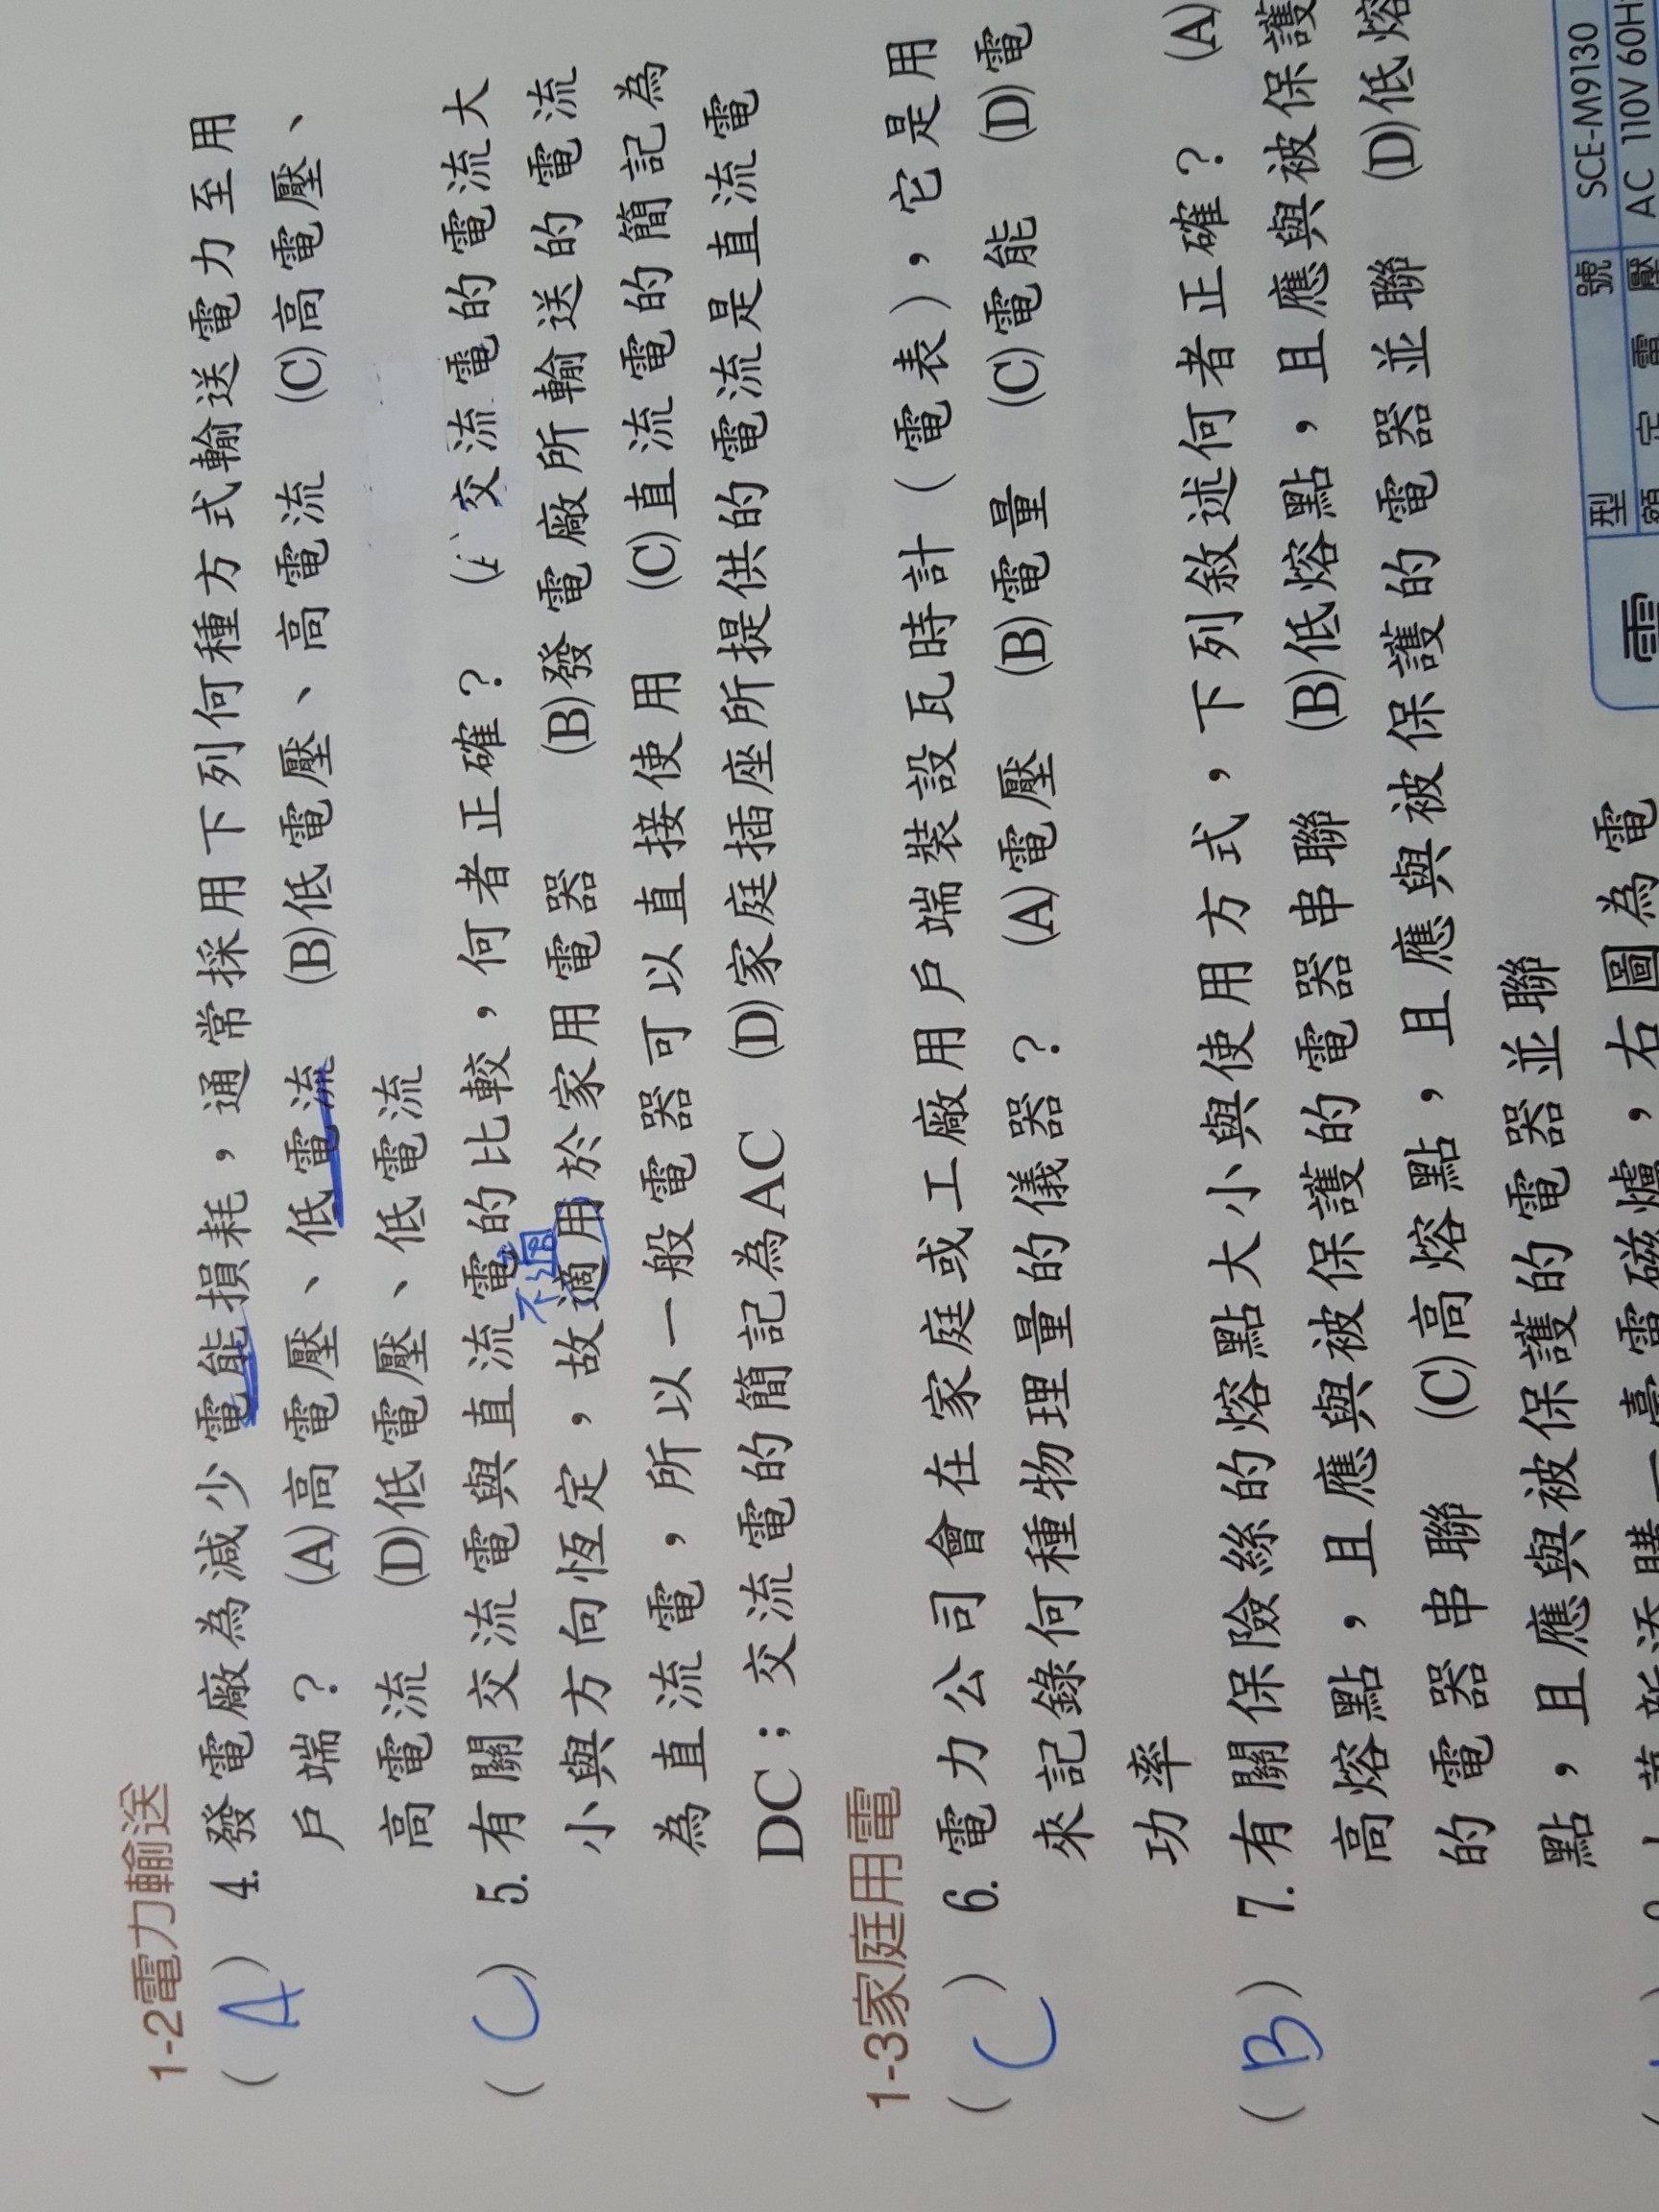 1-2電力輸送
( A ) 4. 發電廠為減少電能損耗，通常採用下列何種方式輸送電力至用
戶端？ (A)高電壓、低電流 (B)低電壓、高電流 (C)高電壓、
高電流 (D)低電壓、低電流
( C ) 5. 有關交流電與直流電的比較，何者正確？ 交流電的電流大
不適
小與方向恆定，故適用於家用電器 (B)發電廠所輸送的電流
為直流電，所以一般電器可以直接使用 (C)直流電的簡記為
DC；交流電的簡記為AC (D)家庭插座所提供的電流是直流電
1-3家庭用電
( C ) 6. 電力公司會在家庭或工廠用戶端裝設瓦時計（電表），它是用
來記錄何種物理量的儀器？ (A)電壓 (B)電量 (C)電能 (D)電
功率
( B ) 7. 有關保險絲的熔點大小與使用方式，下列敘述何者正確？ (A)
高熔點，且應與被保護的電器串聯 (B)低熔點，且應與被保護
的電器串聯 (C)高熔點，且應與被保護的電器並聯 (D)低熔
點，且應與被保護的電器並聯
右圖為電
型號 SCE-M9130
額定電壓 AC 110V 60Hz
電